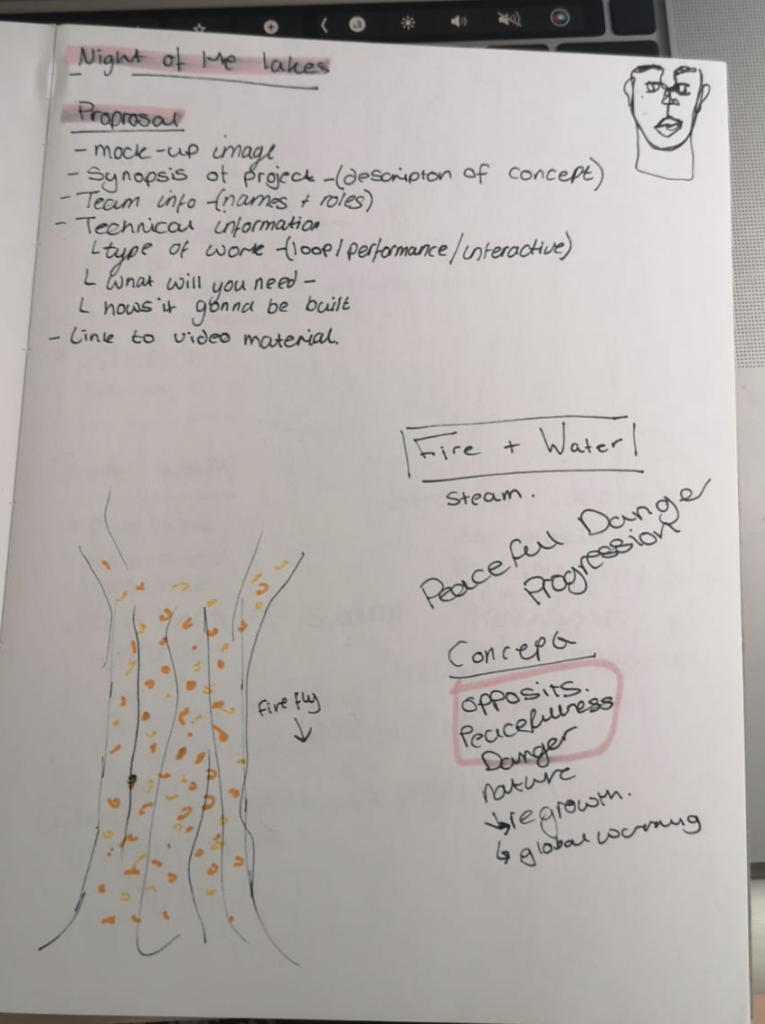 Night of the lakes
Proprosal
- mock-up image
- Synopsis of project -(descripton of concept)
- Team info -(names + roles)
- Technical information
L type of work -(loop/performance/interactive)
L what will you need -
L hows it gonna be built
- Link to video material.
Fire + Water
Steam.
Peaceful Danger
Progression
Concept
opposits.
Peacefullness
Danger
nature
↳ regrowth.
↳ global warming
fire fly
↓